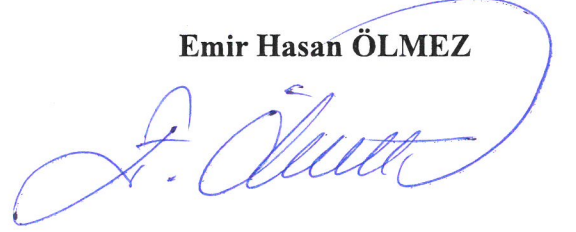 Emir Hasan ÖLMEZ